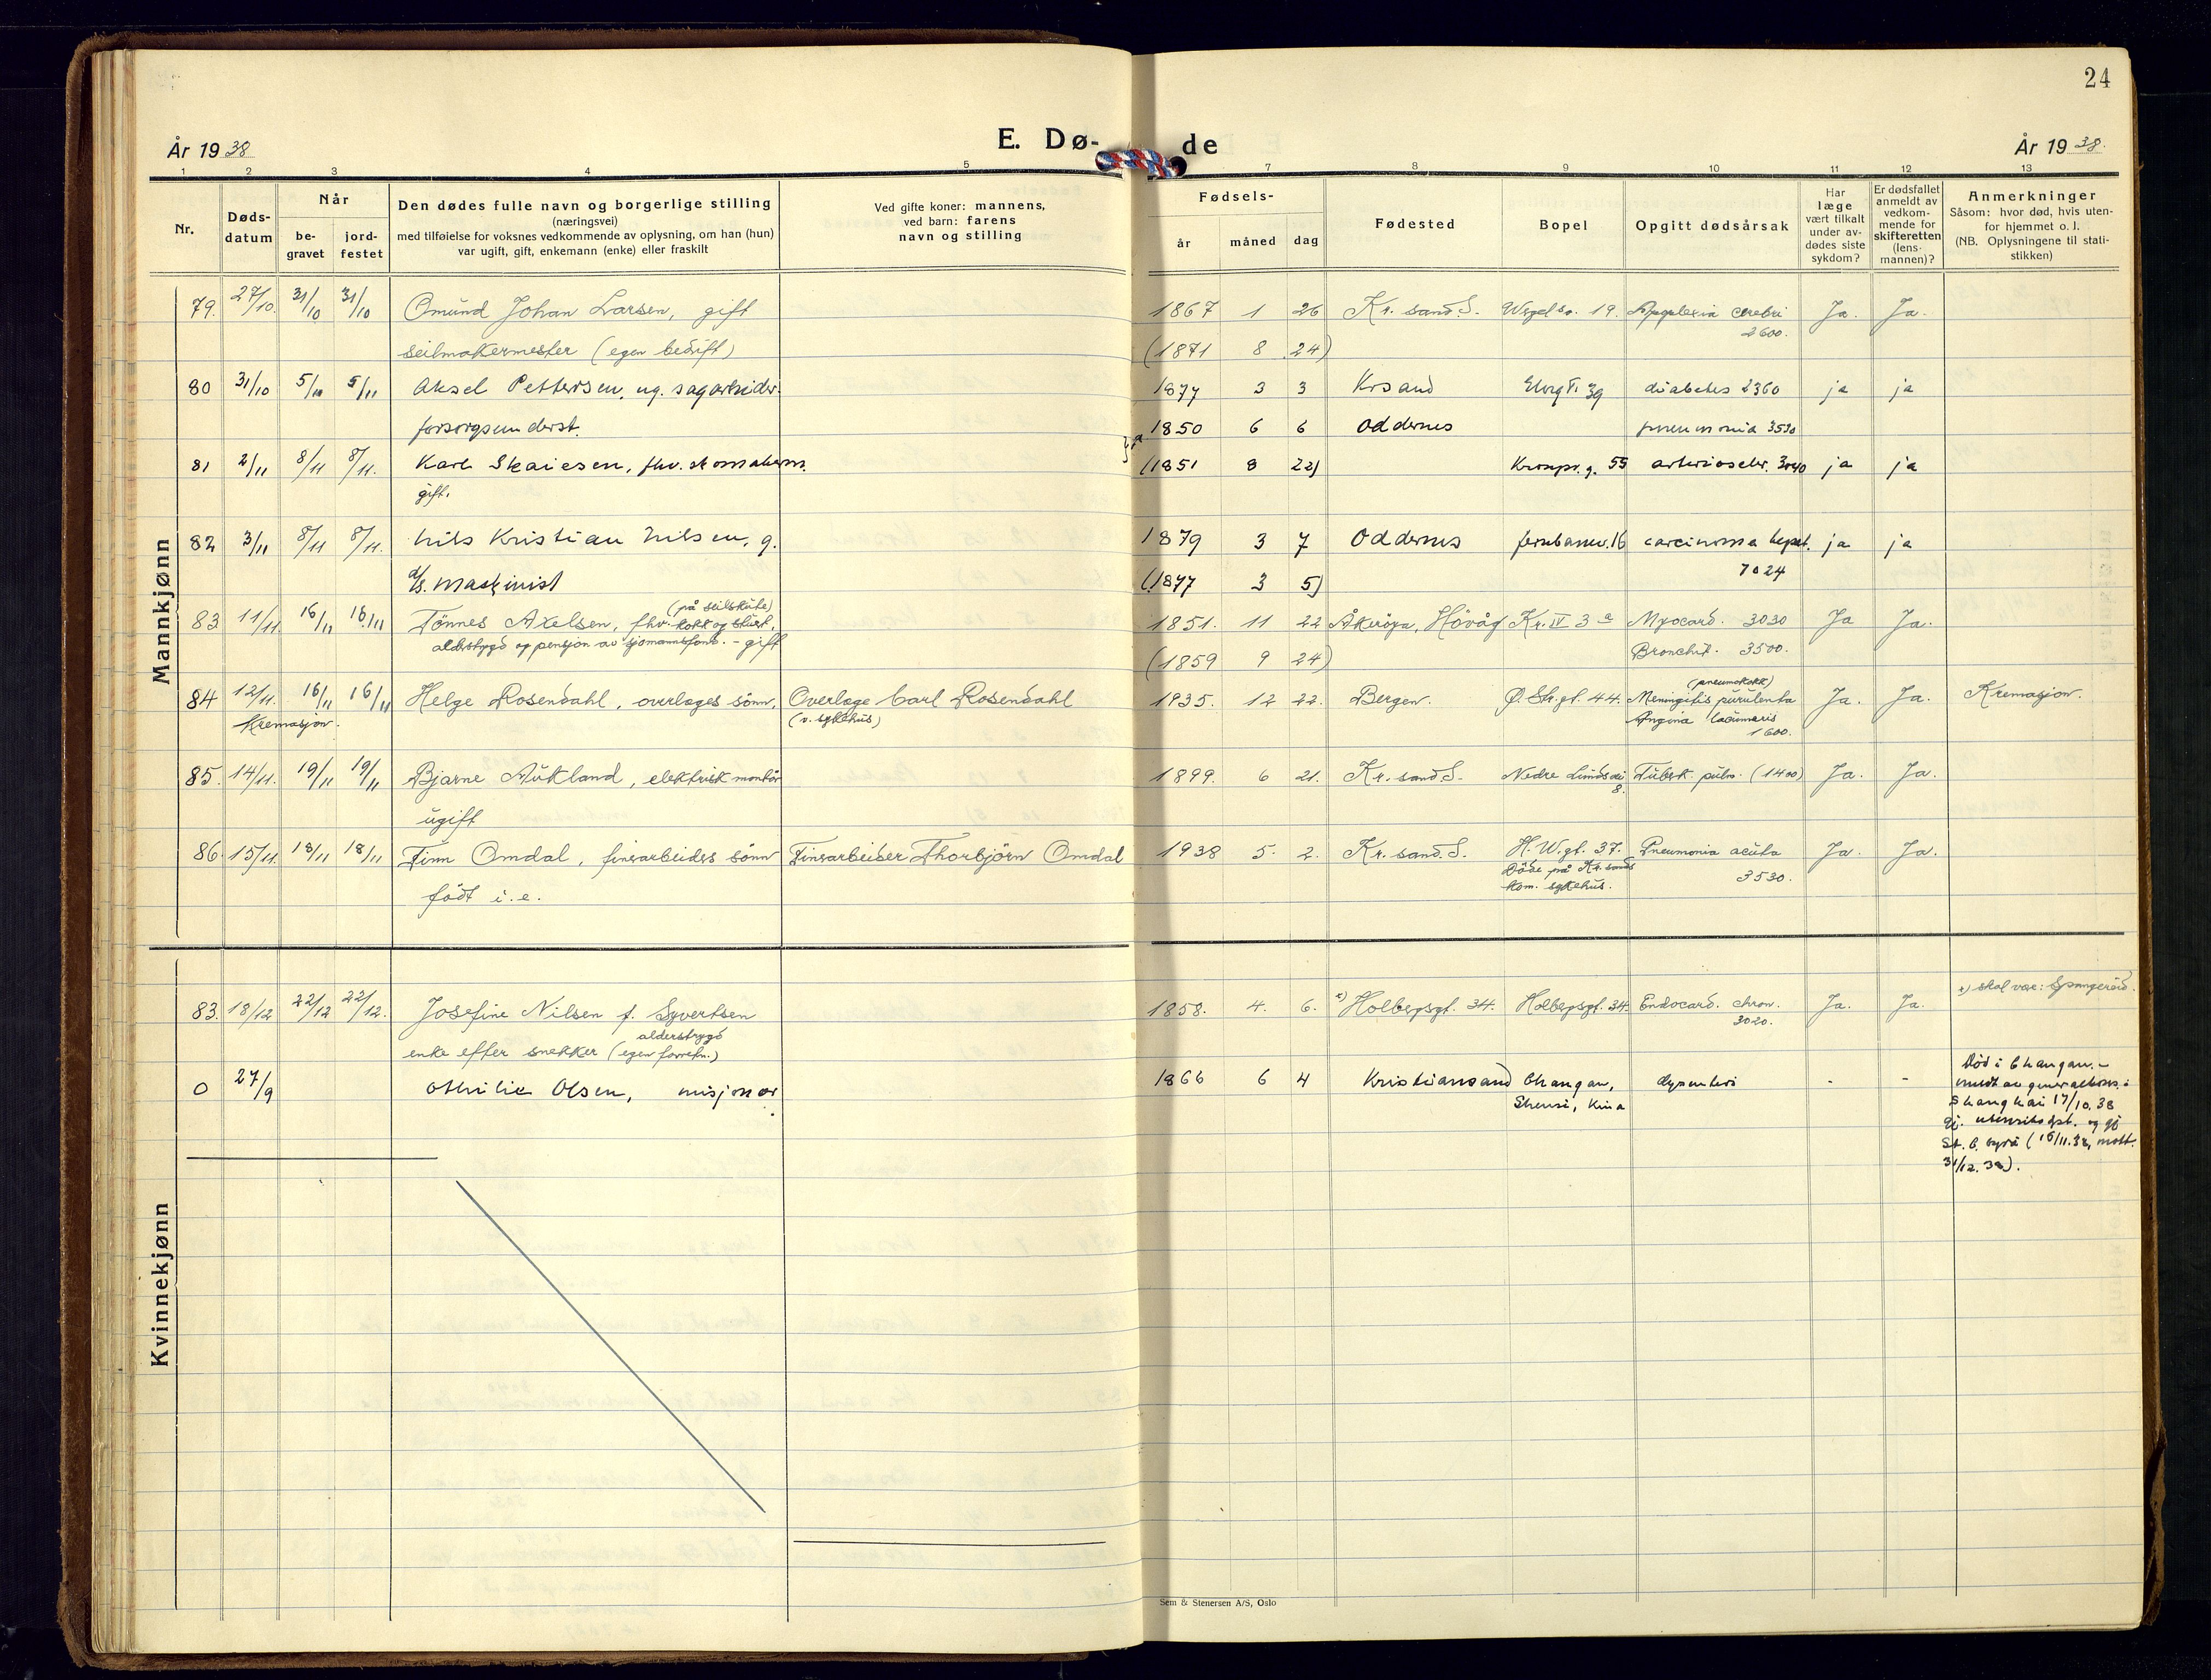 24
År 1938
E. Dø-
de
År 1938.
1 2 3 4 5 7 8 9 10 11 12 13
Nr.
Døds-
datum
Når
be-
gravet
jord-
festet
Den dødes fulle navn og borgerlige stilling
(næringsvei)
med tilføielse for voksnes vedkommende av oplysning, om han (hun)
var ugift, gift, enkemann (enke) eller fraskilt
Ved gifte koner: mannens,
ved barn: farens
navn og stilling
Fødsels-
år måned dag
Fødested
Bopel
Opgitt dødsårsak
Har
læge
vært tilkalt
under av-
dødes siste
sykdom?
Er dødsfallet
anmeldt av
vedkom-
mende for
skifteretten
(lens-
mannen)?
Anmerkninger
Såsom: hvor død, hvis uten-
for hjemmet o. l.
(NB. Oplysningene til stati-
stikken)
Mannkjønn
79. 27/10. 31/10 31/10 Omund Johan Larsen, gift 1867 1 26 Kr.sand.S. 19. Apoplexia cerebri Ja. Ja.
2600.
seilmakermester (egen bedrift) (1871 8 24)
80 31/10 5/10 5/11 Aksel Pettersen, ug. sagarbeider. 1877 3 3 Krsand 39 diabetes 2360 ja ja
forsorgsunderst. 1850 6 6 Oddernes pneumonia 3530
81 2/11 8/11 8/11. Karl Skaiesen, fhv. skomakerm. (1851 8 22) Kronpr.g. 55 arterioscler. 3040 ja ja
gift.
82 3/11 8/11 8/11. Nils Kristian Nilsen, g. 1879 3 7 Oddernes Jernbanev. 16 carcinoma hepat. ja ja
7024
d/s. maskinist (1877 3 5)
(på seilskute)
83 11/11 16/11 16/11 Tönnes Axelsen, fhv. kokk og stuert, 1851. 11 22 Åkeröya, Hövåg Kr. IV 3 a Myocard. 3030 Ja Ja.
alderstrygd og pensjon av sjömannsfond. - gift
(1859 9 24) Bronchit. 3500.
(pneumokokk)
84 12/11. 16/11 16/11 Helge Rosendahl, overlæges sönn, Overlæge Carl Rosendahl 1935. 12 22. Bergen. Ø. Str.gt. 44. Meningitis purulenta Ja. Ja. Kremasjon.
Kremasjon. (v. sykehus) Angina lacunaris
1600.
85. 14/11. 19/11 19/11 Bjarne Aukland, elektrisk montör 1899. 6 21. Kr.sand.S. Nedre 8. Tuberk. pulm. (1400) Ja. Ja.
ugift
86. 15/11. 18/11 18/11 Finn Omdal, finerarbeiders sönn Finerarbeider Thorbjörn Omdal 1938 5. 2. Kr.sand.S. H.W.gt. 37. Pneumonia acuta Ja. Ja.
Döde på Kr.sands
3530.
kom. sykehus.
födt i.e.
Kvinnekjønn
83. 18/12 22/12 22/12. Josefine Nilsen f. Syvertsen 1858. 4. 6. x) Holbergsgt. 34. Holbergsgt. 34. Endocard. chron. Ja. Ja. x) skal være:
3020.
alderstrygd
enke efter snekker (egen forretn.)
0 27/9 Othilie Olsen, misjonær 1866 6 4 Kristiansand Changan, dysenteri - -
Shensi, Kina
Död i Changan. -
meldt av generalkons. i
Shanghai 17/10.38
gj. utenriksdpt. og gj
St. C. byrå (16/11.38, mott.
31/12.38).
Sem & Stenersen A/S, Oslo